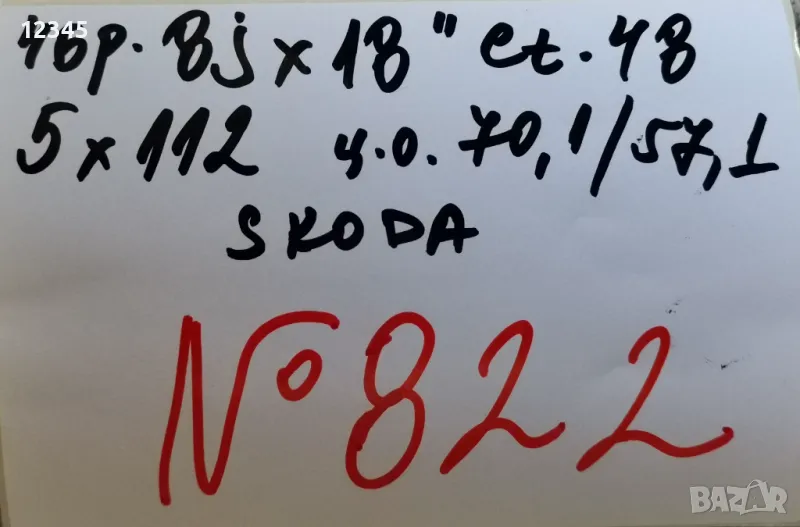 12345
4бр. 8j x 18" et. 48
5 x 112 ц.о. 70,1/57,1
SKODA
№ 822
BAZAR